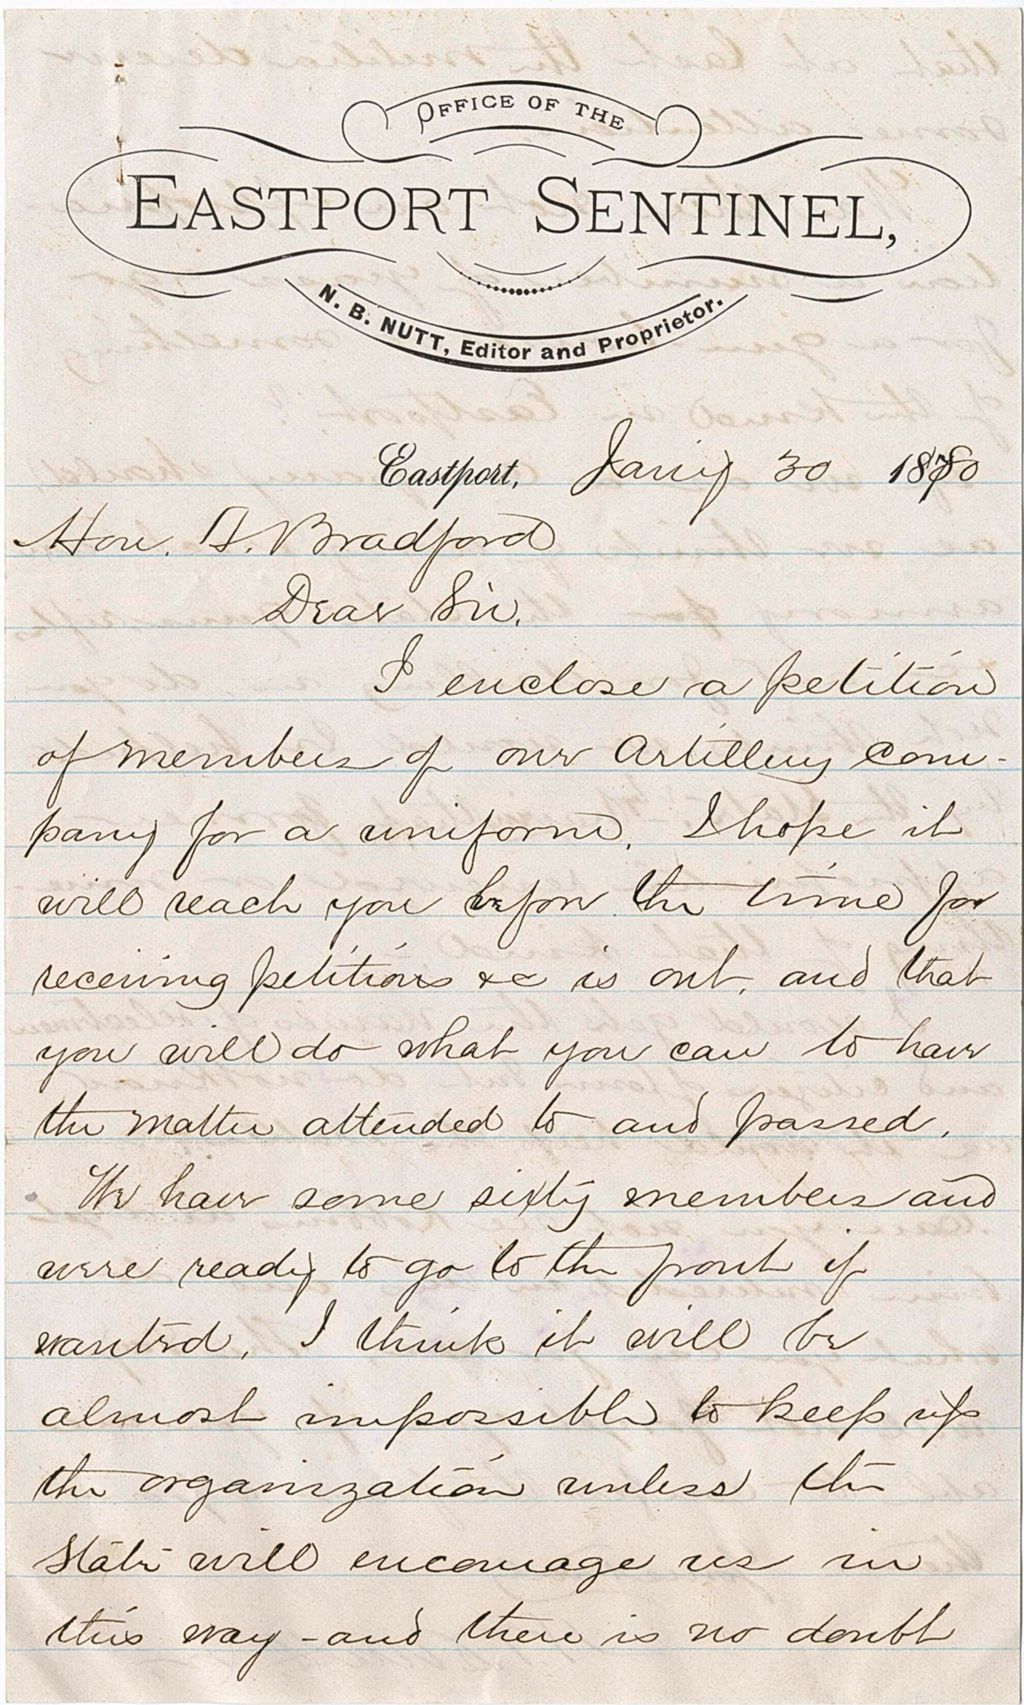 OFFICE OF THE
EASTPORT SENTINEL,
N. B. NUTT, Editor and Proprietor.
Eastport, Jany 30 1880
Hon. A. Bradford
Dear Sir.
I enclose a petition
of members of our Artillery Com-
pany for a uniform. I hope it
will reach you before the time for
receiving petitions &c is out, and that
you will do what you can to have
the matter attended to and passed.
We have some sixty members and
were ready to go to the front if
wanted. I think it will be
almost impossible to keep up
the organization unless the
State will encourage us in
this way - and there is no doubt